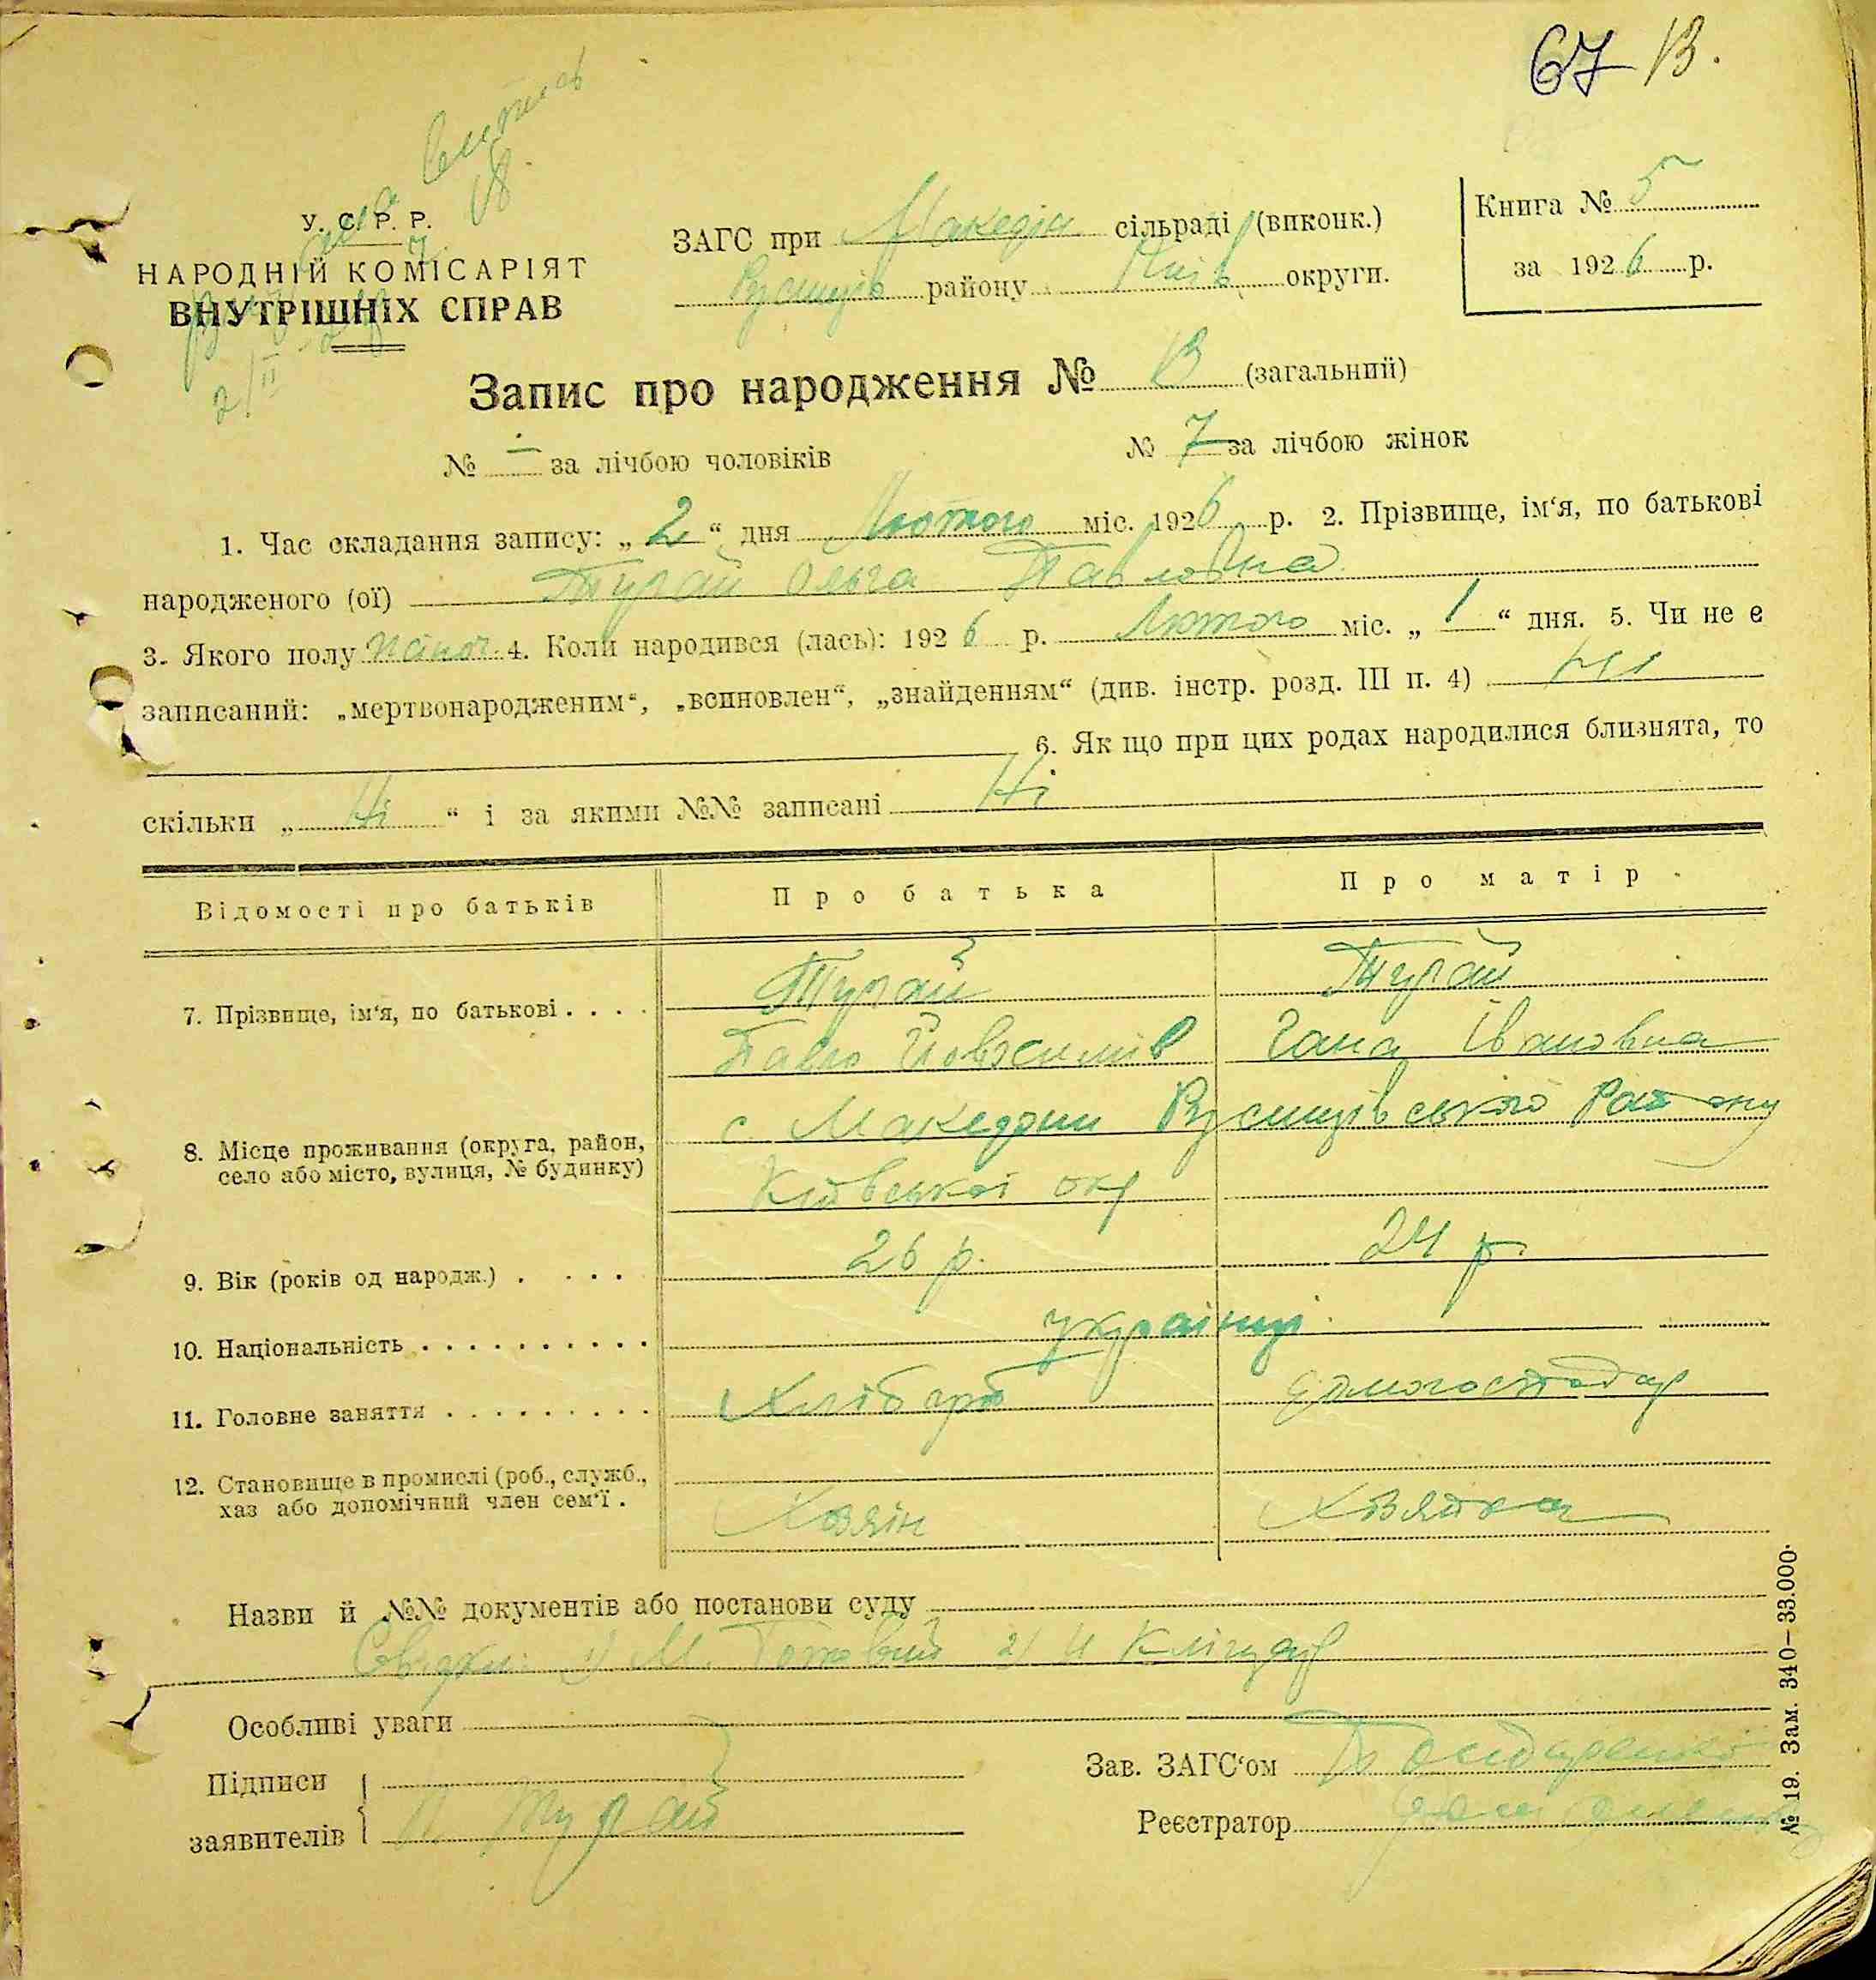 67 13.
Виписъ
У. С. Р. Р.
НАРОДНІЙ КОМІСАРІЯТ
ВНУТРІШНІХ СПРАВ
2/II
ЗАГС при Македон сільраді (виконк.)
району Київ округи.
Книга № 5
за 1926 р.
Запис про народження № 13 (загальний)
№ — за лічбою чоловіків № 7 за лічбою жінок
1. Час складання запису: „ 2 “ дня Лютого міс. 1926 р. 2. Прізвище, ім‘я, по батькові
народженого (ої) Турай Ольга Павловна
3. Якого полу жіноч. 4. Коли народився (лась): 1926 р. Лютого міс. „ 1 “ дня. 5. Чи не є
записаний: „мертвонародженим“, „всиновлен“, „знайденням“ (див. інстр. розд. III п. 4) Ні
6. Як що при цих родах народилися близнята, то
скільки „ Ні “ і за якими №№ записані Ні
Відомості про батьків Про батька Про матір
7. Прізвище, ім‘я, по батькові . . . . Турай Турай
Павло Гана Івановна
8. Місце проживання (округа, район, с. Македони Району
село або місто, вулиця, № будинку) Київської окр
9. Вік (років од народж.) . . . . 26 р. 24 р.
10. Національність . . . . . . . . . . українці
11. Головне заняття . . . . . . . . . Хлібороб
12. Становище в промислі (роб., служб.,
хаз або допомічний член сем‘ї . Хозяін Хозяйка
Назви й №№ документів або постанови суду
1) М. 2) И
Особливі уваги
Підписи
заявителів П Турай
Зав. ЗАГС‘ом Бондаренко
Реєстратор
№ 19. Зам. 340–33.000.